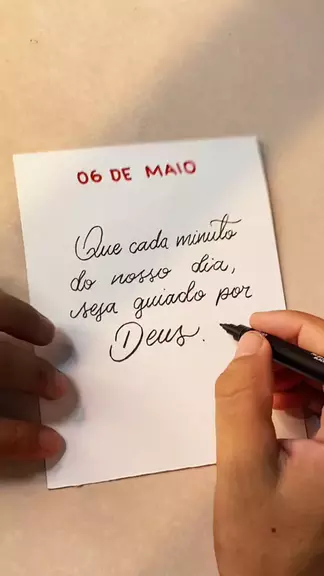 06 DE MAIO
Que cada minuto
do nosso dia,
seja guiado por
Deus.